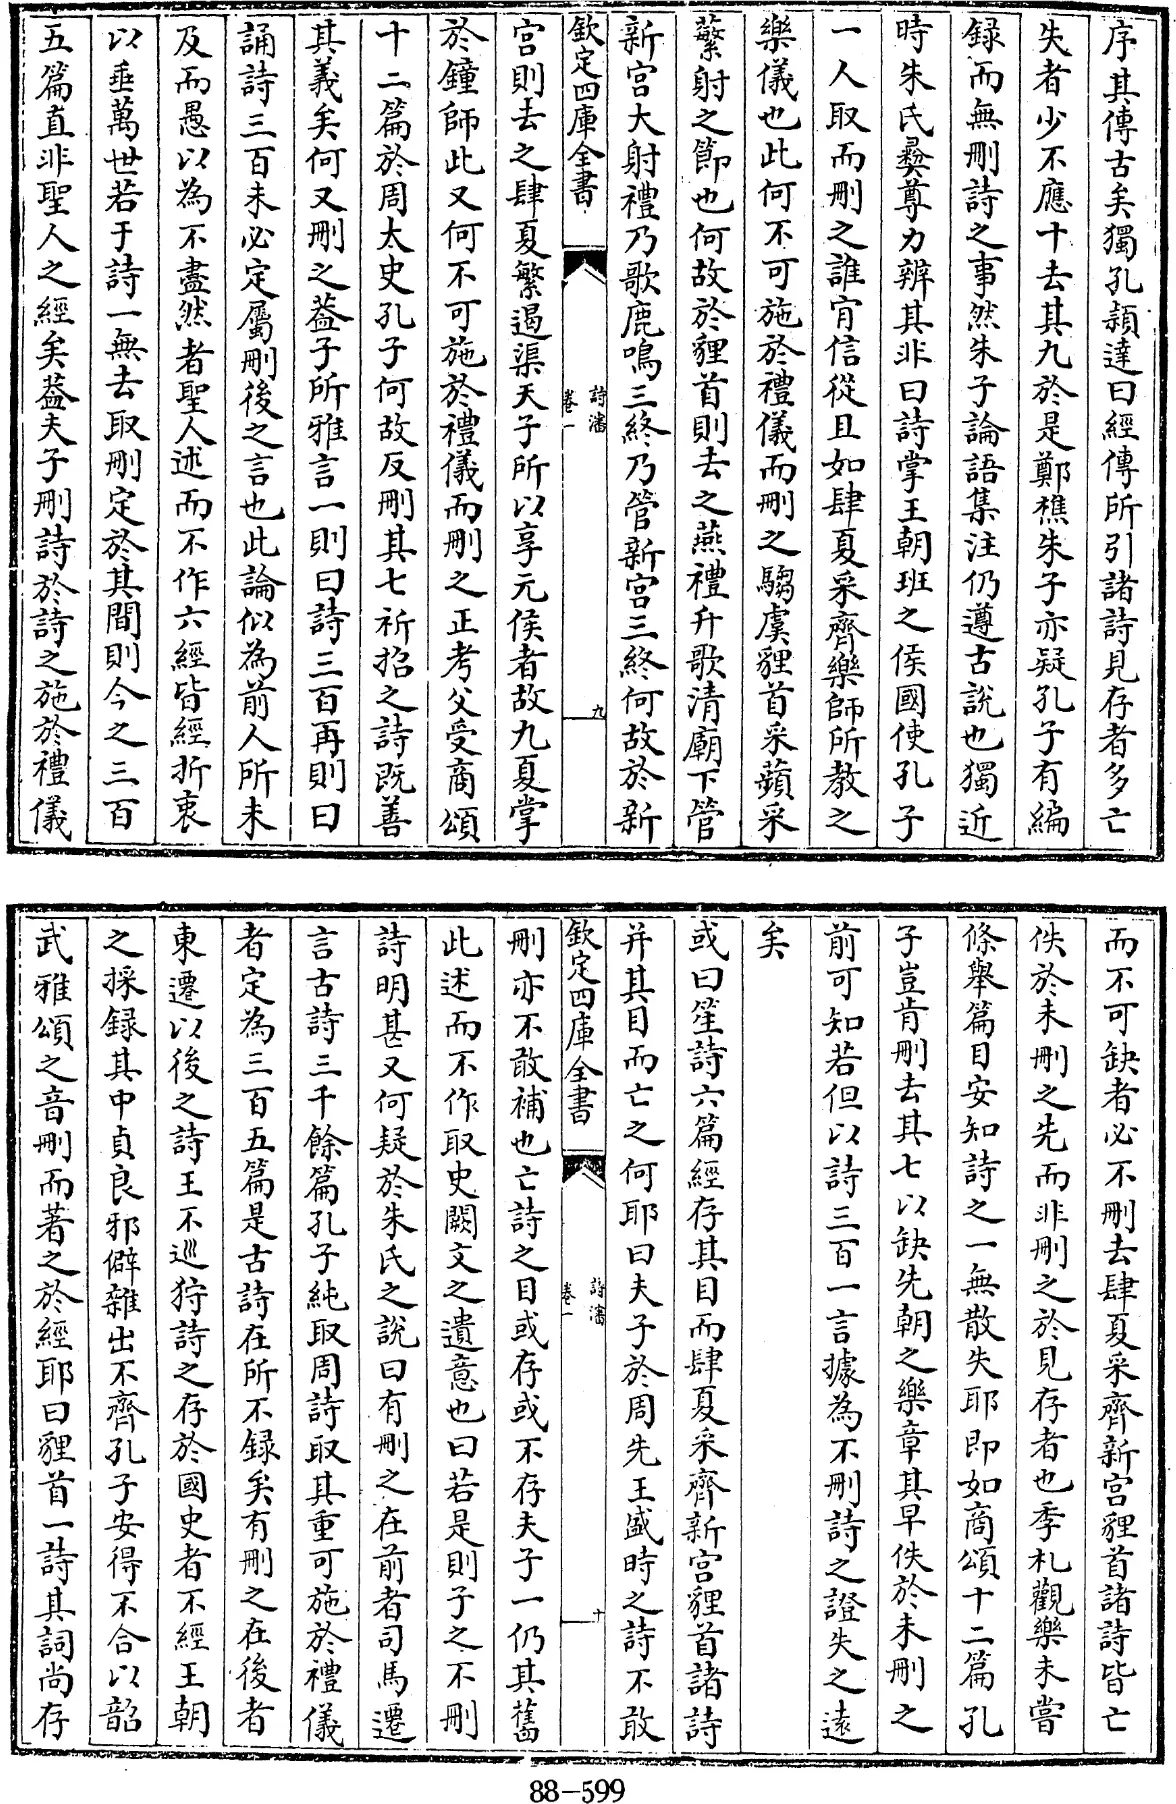 序其傳古矣獨孔穎達曰經傳所引諸詩見存者多亡
失者少不應十去其九於是鄭樵朱子亦疑孔子有編
録而無刪詩之事然朱子論語集注仍遵古說也獨近
時朱氏彛尊力辨其非曰詩掌王朝班之侯國使孔子
一人取而刪之誰肎信從且如肆夏采齊樂師所教之
樂儀也此何不可施於禮儀而刪之騶虞貍首采蘋采
蘩射之節也何故於貍首則去之燕禮升歌清廟下管
新宮大射禮乃歌鹿鳴三終乃管新宮三終何故於新
欽定四庫全書
詩瀋
卷一
九
宮則去之肆夏繁遏渠天子所以享元侯者故九夏掌
於鐘師此又何不可施於禮儀而刪之正考父受商頌
十二篇於周太史孔子何故反刪其七祈招之詩既善
其義矣何又刪之葢子所雅言一則曰詩三百再則曰
誦詩三百未必定屬刪後之言也此論似為前人所未
及而愚以為不盡然者聖人述而不作六經皆經折衷
以垂萬世若于詩一無去取刪定於其間則今之三百
五篇直非聖人之經矣葢夫子刪詩於詩之施於禮儀
而不可缺者必不刪去肆夏采齊新宮貍首諸詩皆亡
佚於未刪之先而非刪之於見存者也季札觀樂未嘗
條舉篇目安知詩之一無散失耶即如商頌十二篇孔
子豈肯刪去其七以缺先朝之樂章其早佚於未刪之
前可知若但以詩三百一言據為不刪詩之證失之遠
矣
或曰笙詩六篇經存其目而肆夏采齊新宮貍首諸詩
并其目而亡之何耶曰夫子於周先王盛時之詩不敢
欽定四庫全書
詩瀋
卷一
十
刪亦不敢補也亡詩之目或存或不存夫子一仍其舊
此述而不作取史闕文之遺意也曰若是則子之不刪
詩明甚又何疑於朱氏之說曰有刪之在前者司馬遷
言古詩三千餘篇孔子純取周詩取其重可施於禮儀
者定為三百五篇是古詩在所不録矣有刪之在後者
東遷以後之詩王不巡狩詩之存於國史者不經王朝
之採録其中貞良邪僻雜出不齊孔子安得不合以韶
武雅頌之音刪而著之於經耶曰貍首一詩其詞尚存
88-599